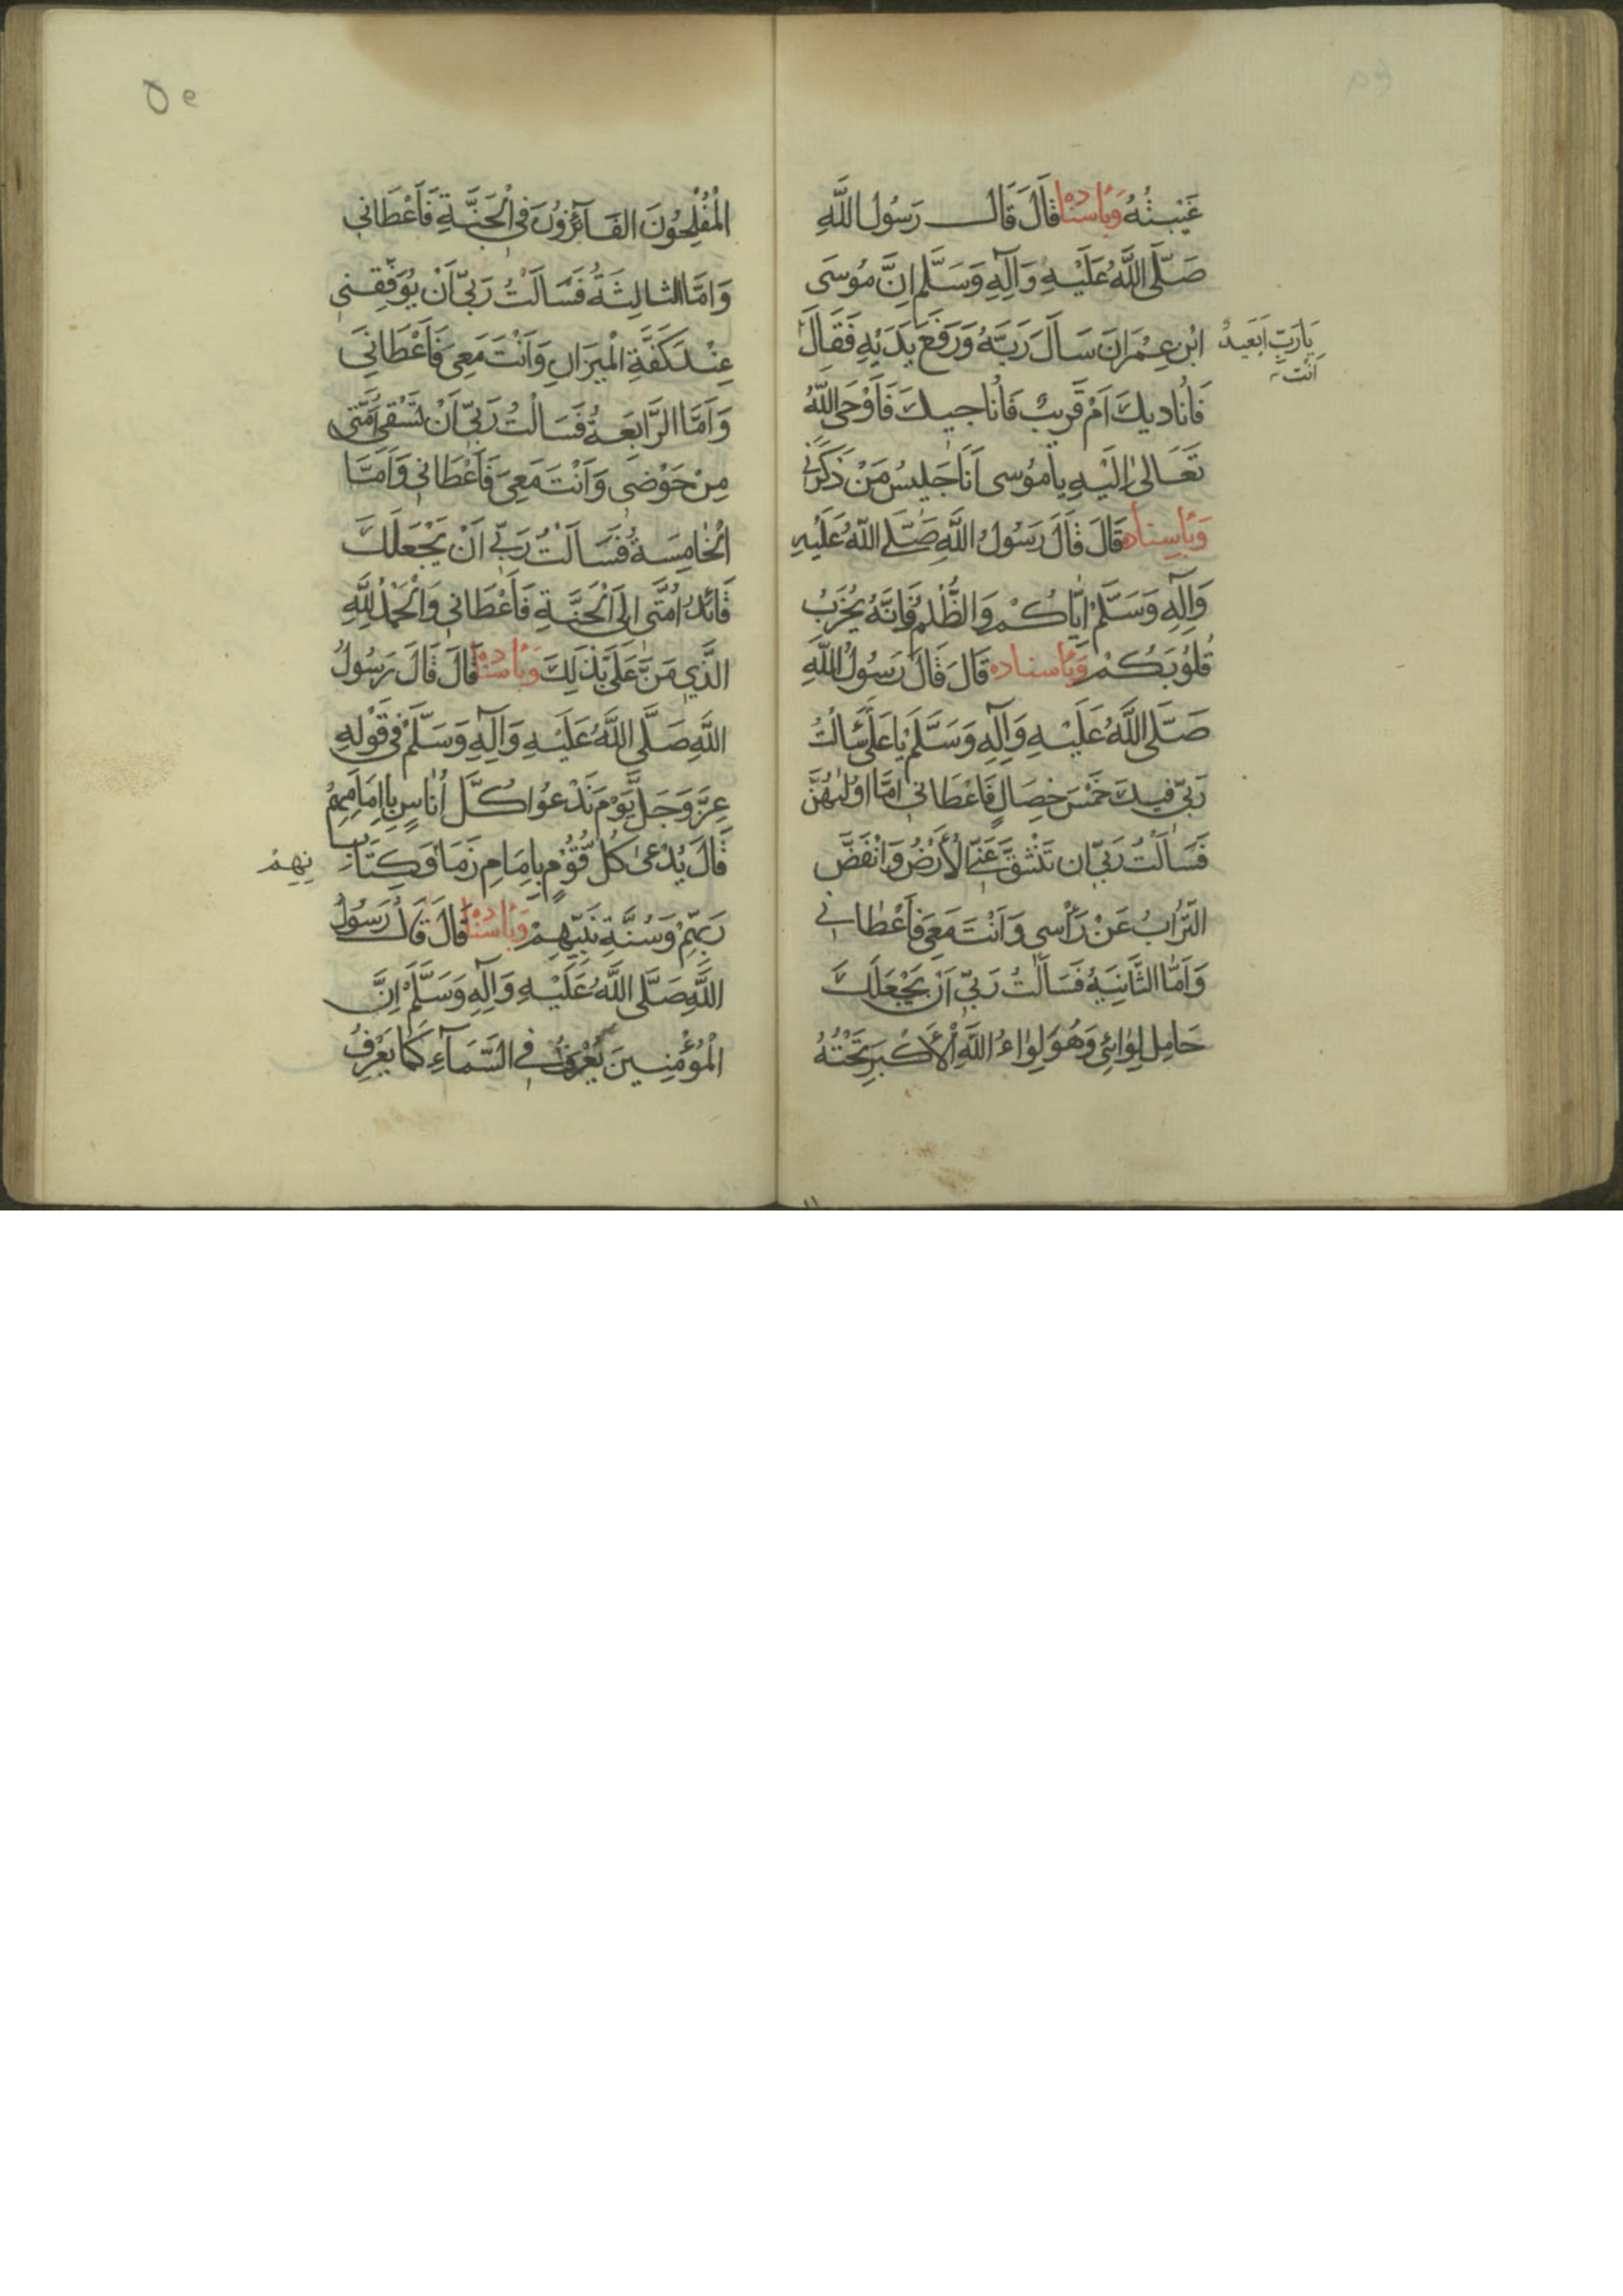 غَيْبَتُهُ وَبِأَسْنَادِهِ قَالَ قَالَ رَسُولُ اللَّهِ
صَلَّى اللَّهُ عَلَيْهِ وَآلِهِ وَسَلَّمْ اِنَّ مُوسَى
ابْنِ عِمْرَانَ سَأَلَ رَبَّهُ وَرَفَعَ يَدَيْهِ فَقَالَ
يَارَبِّ اَبَعِيدٌ
اَنْتَ
فَأُنَادِيكَ اَمْ قَرِيبٌ فَأُنَاجِيكَ فَأَوْحَى اللَّهُ
تَعَالَى اِلَيْهِ يَا مُوسَى اَنَا جَلِيسُ مَنْ ذَكَرَنِي
وَبِأَسْنَادِه قَالَ قَالَ رَسُولُ اللَّهِ صَلَّى اللَّهُ عَلَيْهِ
وَآلِهِ وَسَلَّمْ اِيَّاكُمْ وَالظُّلْمَ فَاِنَّهُ يُخَرِّبُ
قُلُوبَكُمْ وَبِأَسْنَادِه قَالَ قَالَ رَسُولُ اللَّهِ
صَلَّى اللَّهُ عَلَيْهِ وَآلِهِ وَسَلَّمْ يَا عَلِيُّ سَأَلْتُ
رَبِّي فِيكَ خَمْسَ خِصَالٍ فَاَعْطَانِي اَمَّا اَوَّلُهُنَّ
فَسَأَلْتُ رَبِّي اَنْ تَنْشَقَّ عَنِّي الْأَرْضُ وَانْفَضَّ
التُّرَابُ عَنْ رَأْسِي وَاَنْتَ مَعِيَ فَأَعْطَانِي
وَاَمَّا الثَّانِيَةُ فَسَأَلْتُ رَبِّي اَنْ يَجْعَلَكَ
حَامِلَ لِوَائِي وَهُوَ لِوَاءُ اللَّهِ الْأَكْبَرِ تَحْتَهُ
٥٩
الْمُفْلِحُونَ الْفَائِزُونَ فِي الْجَنَّةِ فَأَعْطَانِي
وَاَمَّا الثَّالِثَةُ فَسَأَلْتُ رَبِّي اَنْ يُوَفِّقَنِي
عِنْدَ كَفَّةِ الْمِيزَانِ وَاَنْتَ مَعِيَ فَأَعْطَانِي
وَاَمَّا الرَّابِعَةُ فَسَأَلْتُ رَبِّي اَنْ تَسْقِيَ اُمَّتِي
مِنْ حَوْضِي وَاَنْتَ مَعِيَ فَأَعْطَانِي وَاَمَّا
الْخَامِسَةُ فَسَأَلْتُ رَبِّي اَنْ يَجْعَلَكَ
قَائِدَ اُمَّتِي اِلَى الْجَنَّةِ فَأَعْطَانِي وَالْحَمْدُ لِلَّهِ
الَّذِي مَنَّ عَلَيَّ بِذَلِكَ وَبِأَسْنَادِهِ قَالَ قَالَ رَسُولُ
اللَّهِ صَلَّى اللَّهُ عَلَيْهِ وَآلِهِ وَسَلَّمْ فِي قَوْلِهِ
عَزَّ وَجَلَّ يَوْمَ نَدْعُوا كُلَّ اُنَاسٍ بِاِمَامِهِمْ
قَالَ يُدْعَى كُلُّ قَوْمٍ بِاِمَامِ زَمَانِهِمْ وَكِتَابِ
رَبِّهِمْ وَسُنَّةِ نَبِيِّهِمْ وَبِأَسْنَادِهِ قَالَ قَالَ رَسُولُ
اللَّهِ صَلَّى اللَّهُ عَلَيْهِ وَآلِهِ وَسَلَّمْ اِنَّ
الْمُؤْمِنِينَ يُعْرَفُ فِي السَّمَاءِ كَمَا يَعْرِفُ